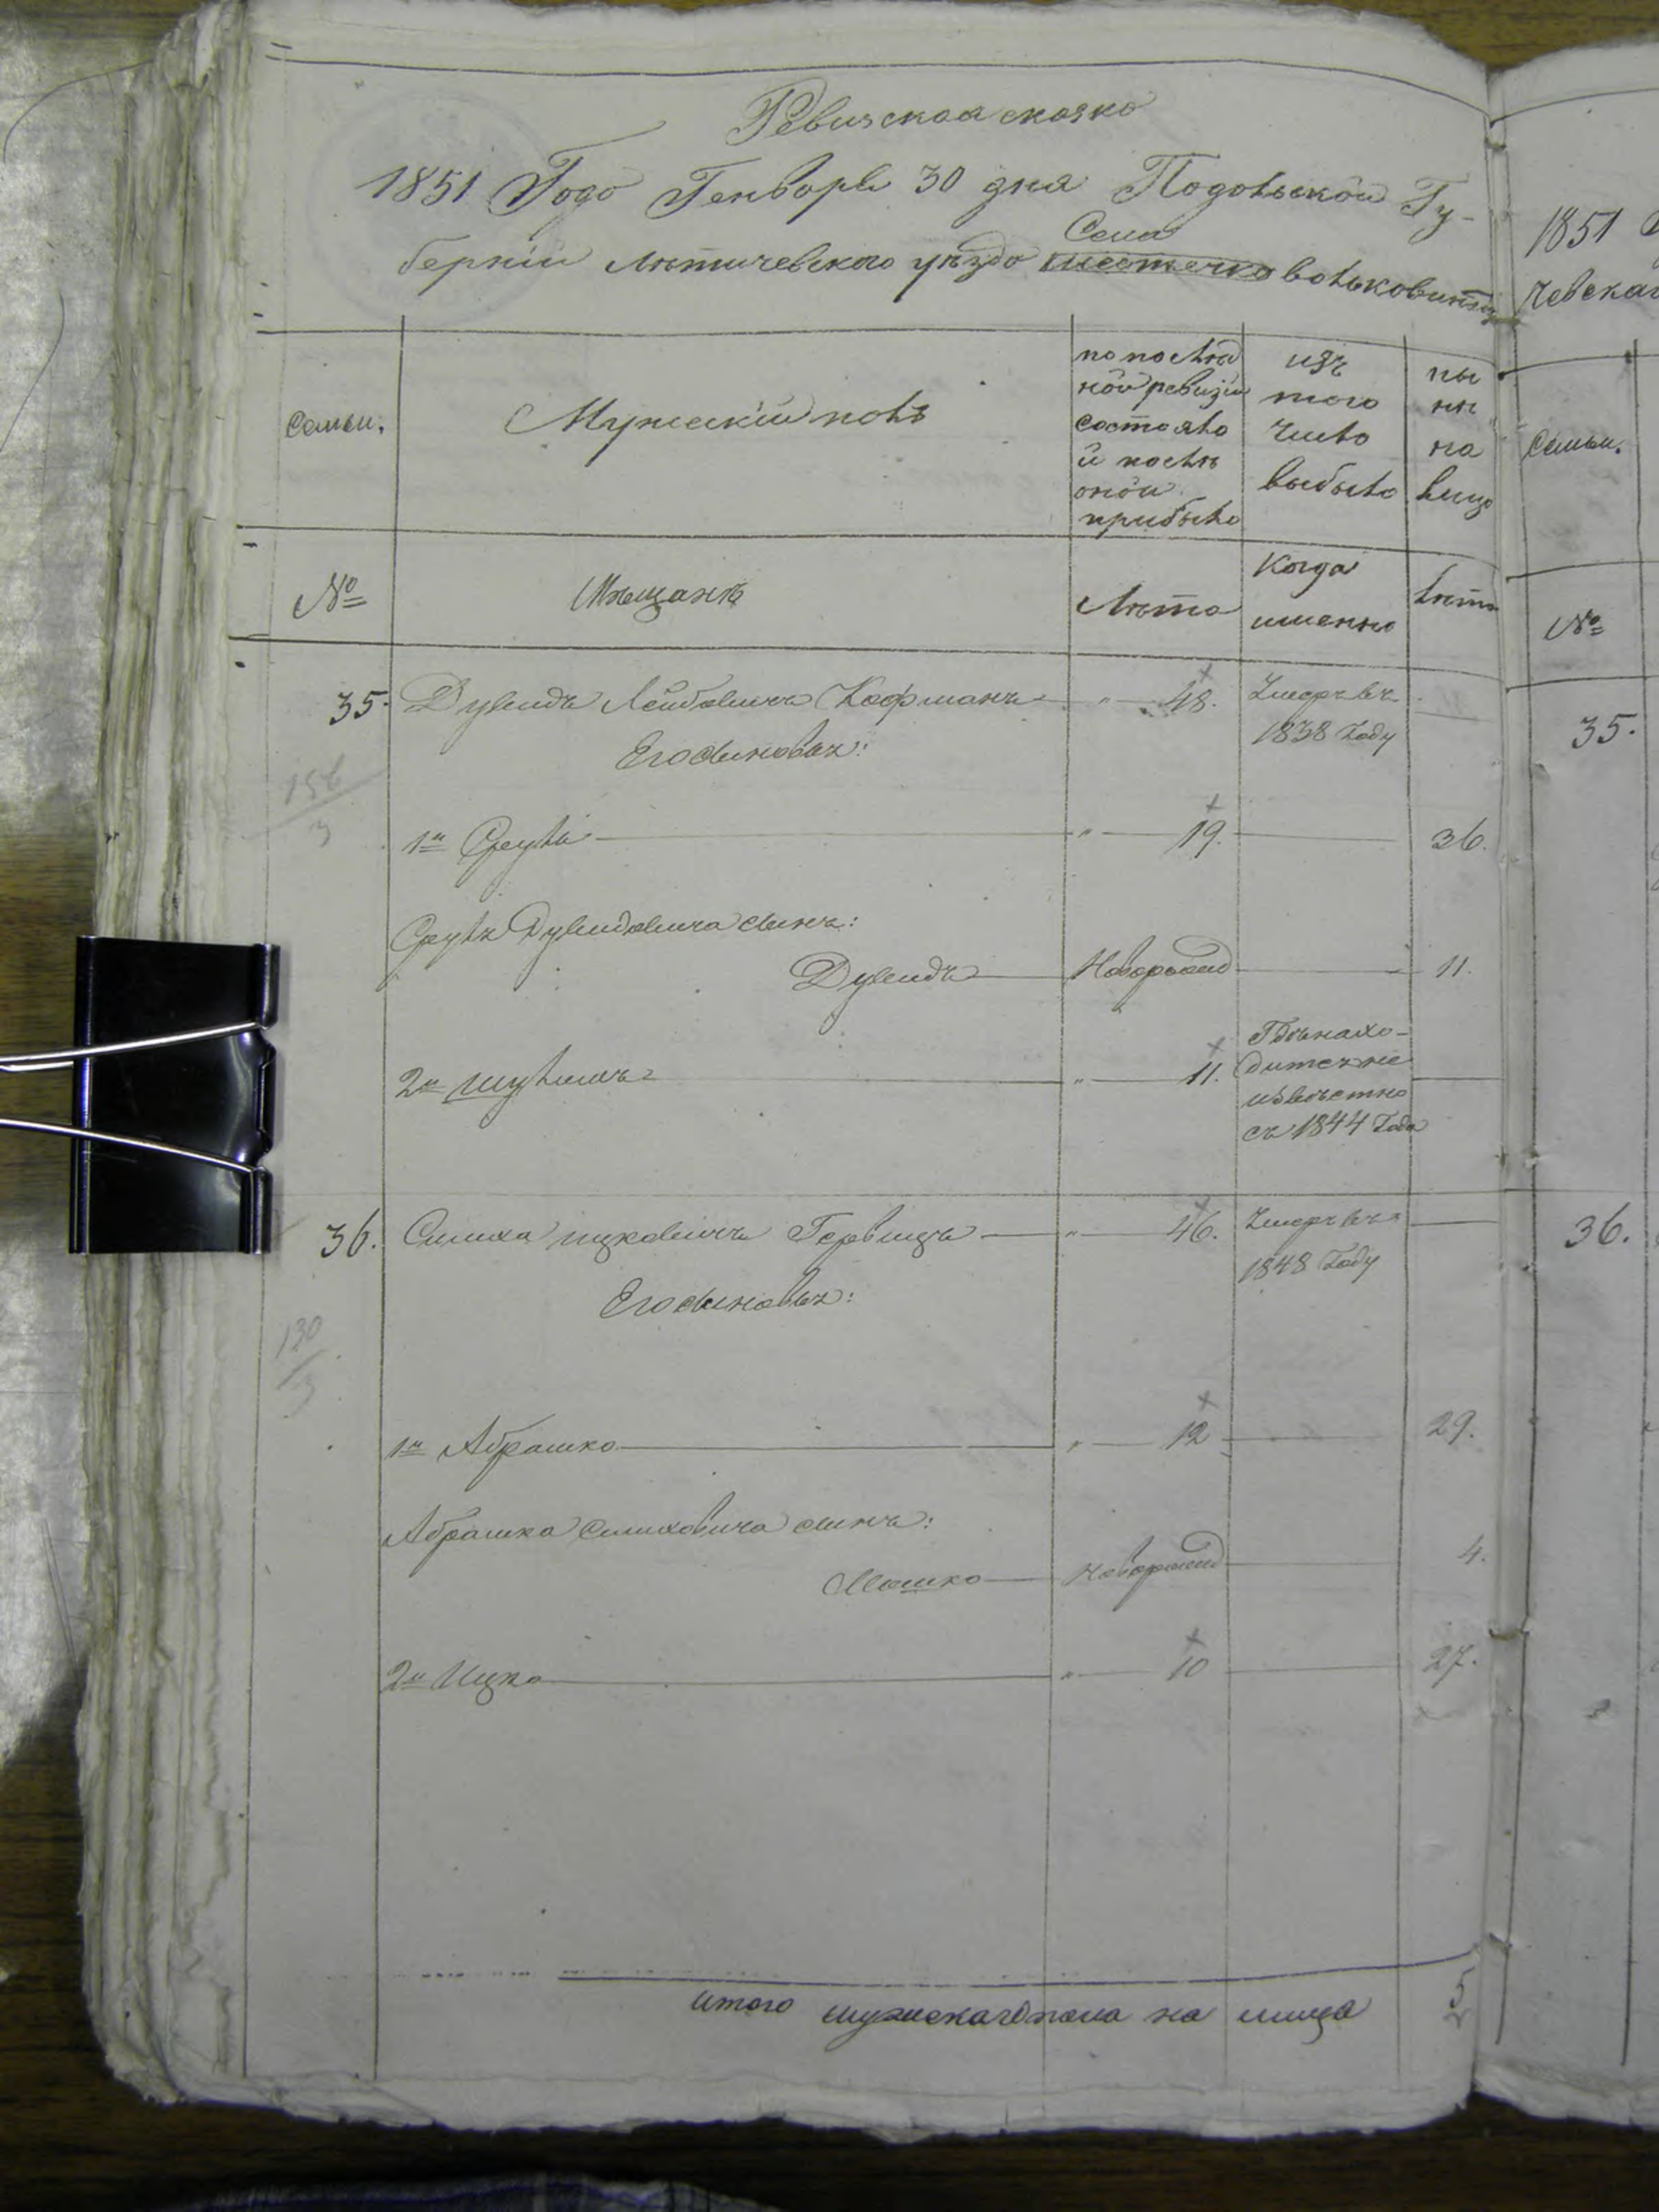 Ревизская сказка
1851 Года Генваря 30 дня Подольской Гу-
Села
берніи Летичевского уѣзда местечка Вольковинец
Семьи.
Мужескій полъ
по послѣд
ной ревизіи
состояло
и послѣ
оной
прибыло
изъ
того
числа
выбыло
ны
нѣ
на
лицо
№
Мѣщанъ
Лѣта
Когда
именно
Лѣта
35. Дувидъ Лейбовичъ Кофманъ " 48. Умеръ въ
1838 Году
Его сыновья:
156
3
1й Сруль " 19. 36.
Сруля Дувидовича сынъ:
Дувидъ Новорожд 11.
2й Шулимъ " 11. Гдѣ нахо-
дится не
извѣстно
съ 1844 Года
36. Симха Ицковичъ Гервицъ " 46. Умеръ въ
1848 Году
Его сыновья:
130
3
1й Абрашко " 12 29.
Абрашка Симховича сынъ:
Мошко Новорожд 4.
2й Ицко " 10 27.
Итого мужескаго пола на лицо 5
1851
чевскаг
Семьи.
№
35.
36.